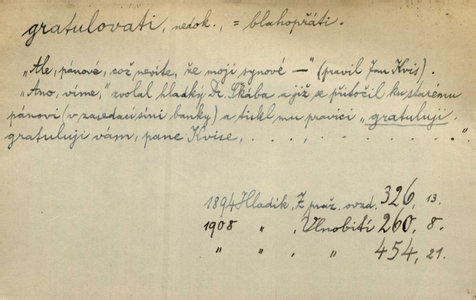 gratulovati, nedok., = blahopřáti.
„Ale, pánové, což nevíte, že moji synové —" (pravil Jan Kvis).
„Ano, víme," zvolal hladký Dr. Škába a již se přitočil ku starému
pánovi (v zasedací síni banky) a tiskl mu pravici „gratuluji
gratuluji vám, pane Kvise, . . , . . . . . . "
1894 Hladík, Z praž. ovzd. 326, 13.
1908 „ , Vlnobití 260, 8.
„ „ , „ 454, 21.